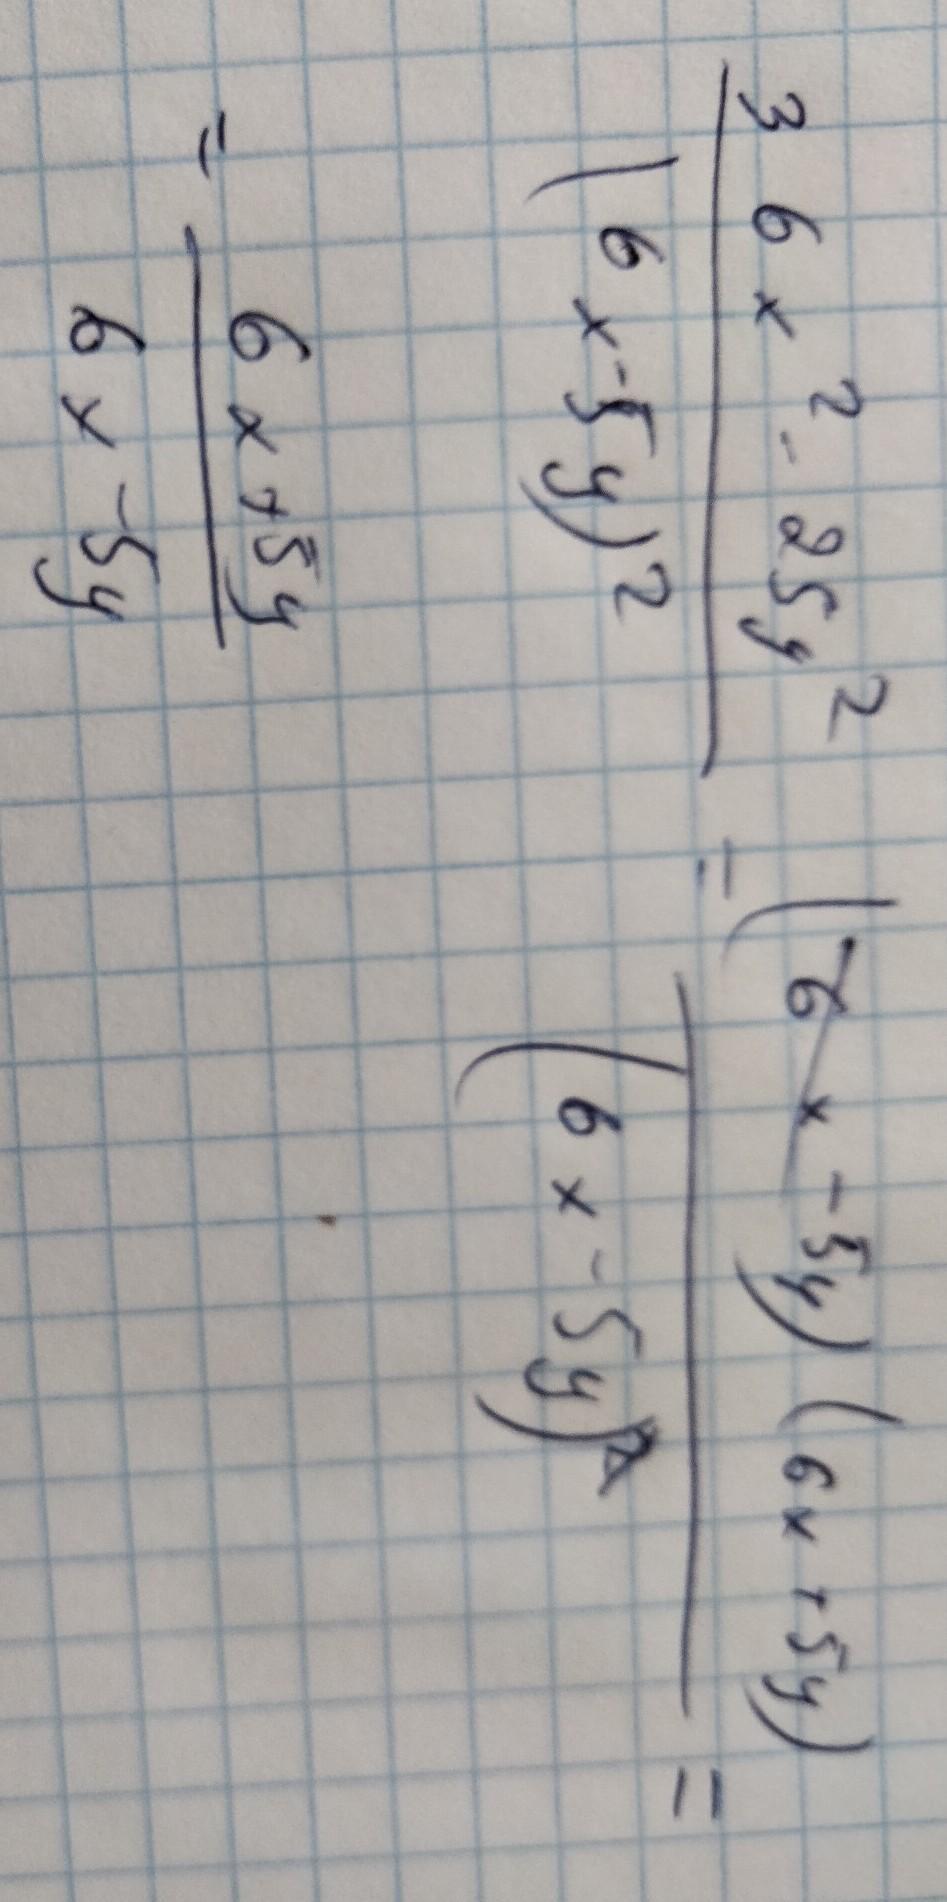 36x² - 25y² = (6x - 5y)(6x + 5y) =
(6x - 5y)² (6x - 5y)²
= 6x + 5y
6x - 5y